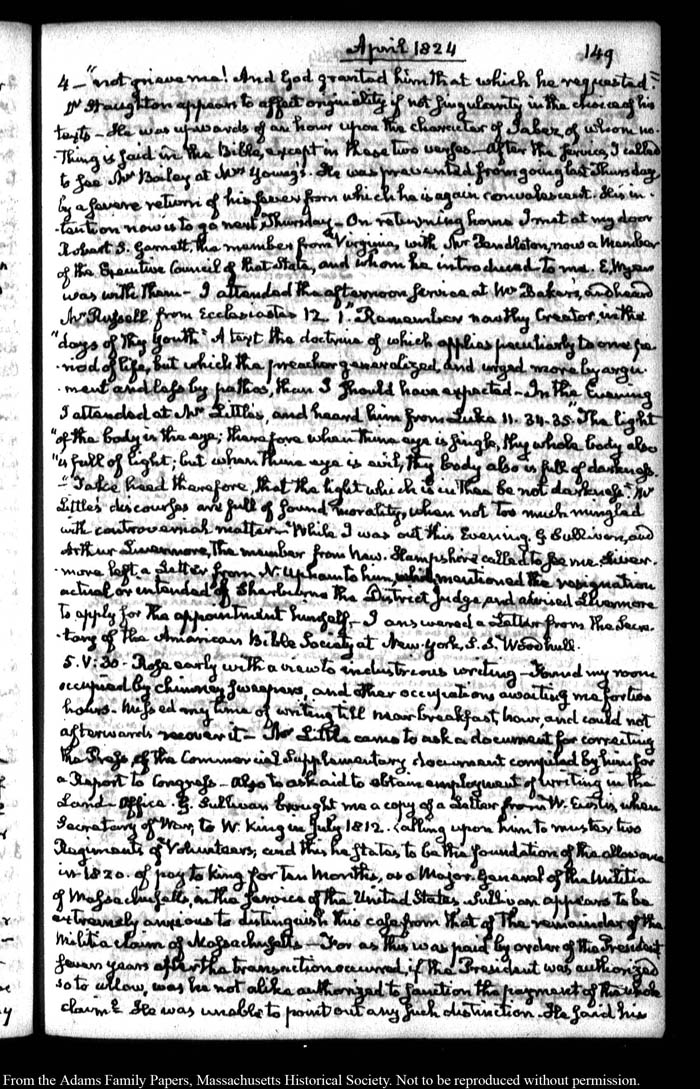 April 1824
149
4 — "not grieve me! And God granted him that which he requested."
Dr Staughton appears to affect originality if not singularity in the choice of his
texts — He was upwards of an hour upon the character of Jabez, of whom no-
thing is said in the Bible, except in these two verses — After the service, I called
to see Mr Bailey at Mrs Young's. He was prevented from going last Thursday,
by a severe return of his fever from which he is again convalescent. His in-
tention now is to go next Thursday — On returning home I met at my door
Robert S. Garnett, the member from Virginia, with Mr Pendleton, now a Member
of the Executive Council of that State, and whom he introduced to me. E. Wyer
was with them — I attended the afternoon service at Mr Baker's, and heard
Mr Russell, from Ecclesiastes 12. 1. Remember now thy Creator, in the
"days of thy youth" A text the doctrine of which applies peculiarly to one pe-
-riod of life, but which the preacher generalized, and urged more by argu-
-ment and less by pathos, than I should have expected — In the Evening
I attended at Mr Little's, and heard him from Luke 11. 34. 35. The light
"of the body is the eye; therefore when thine eye is single, thy whole body also
"is full of light; but when thine eye is evil, thy body also is full of darkness.
— "Take heed therefore that the light which is in thee be not darkness." Mr
Little's discourses are full of sound morality, when not too much mingled
with controversial matter — While I was out this Evening, G Sullivan, and
Arthur Livermore, the member from New-Hampshire called to see me. Liver-
-more left a Letter from N. Upham to him, which mentioned the resignation
actual or intended of Sherburne the District Judge, and advised Livermore
to apply for the appointment himself — I answered a Letter from the Secre-
tary of the American Bible Society at New-York, S. S. Woodhull.
5. V: 30 — Rose early with a view to industrious writing — Found my room
occupied by chimney sweepers, and other occupations awaiting me for two
hours. Missed my time of writing till near breakfast hour, and could not
afterwards recover it — Mr Little came to ask a document for correcting
the Press of the Commercial Supplementary document compiled by him for
a Report to Congress — Also to ask aid to obtain employment of writing in the
Land-Office. G. Sullivan brought me a copy of a Letter from W. Eustis, when
Secretary of War, to W. King in July 1812. calling upon him to muster two
Regiments of Volunteers, and this he states to be the foundation of the allowance
in 1820. of pay to King for Ten Months, as a Major-General of the Militia
of Massachusetts, in the service of the United States. Sullivan appears to be
extremely anxious to distinguish this case from that of the remainder of the
Militia claim of Massachusetts — For as this was paid by order of the President
seven years after the transaction occurred, if the President was authorized
so to allow, was he not alike authorized to sanction the payment of the whole
claim? He was unable to point out any such distinction. He said his
From the Adams Family Papers, Massachusetts Historical Society. Not to be reproduced without permission.